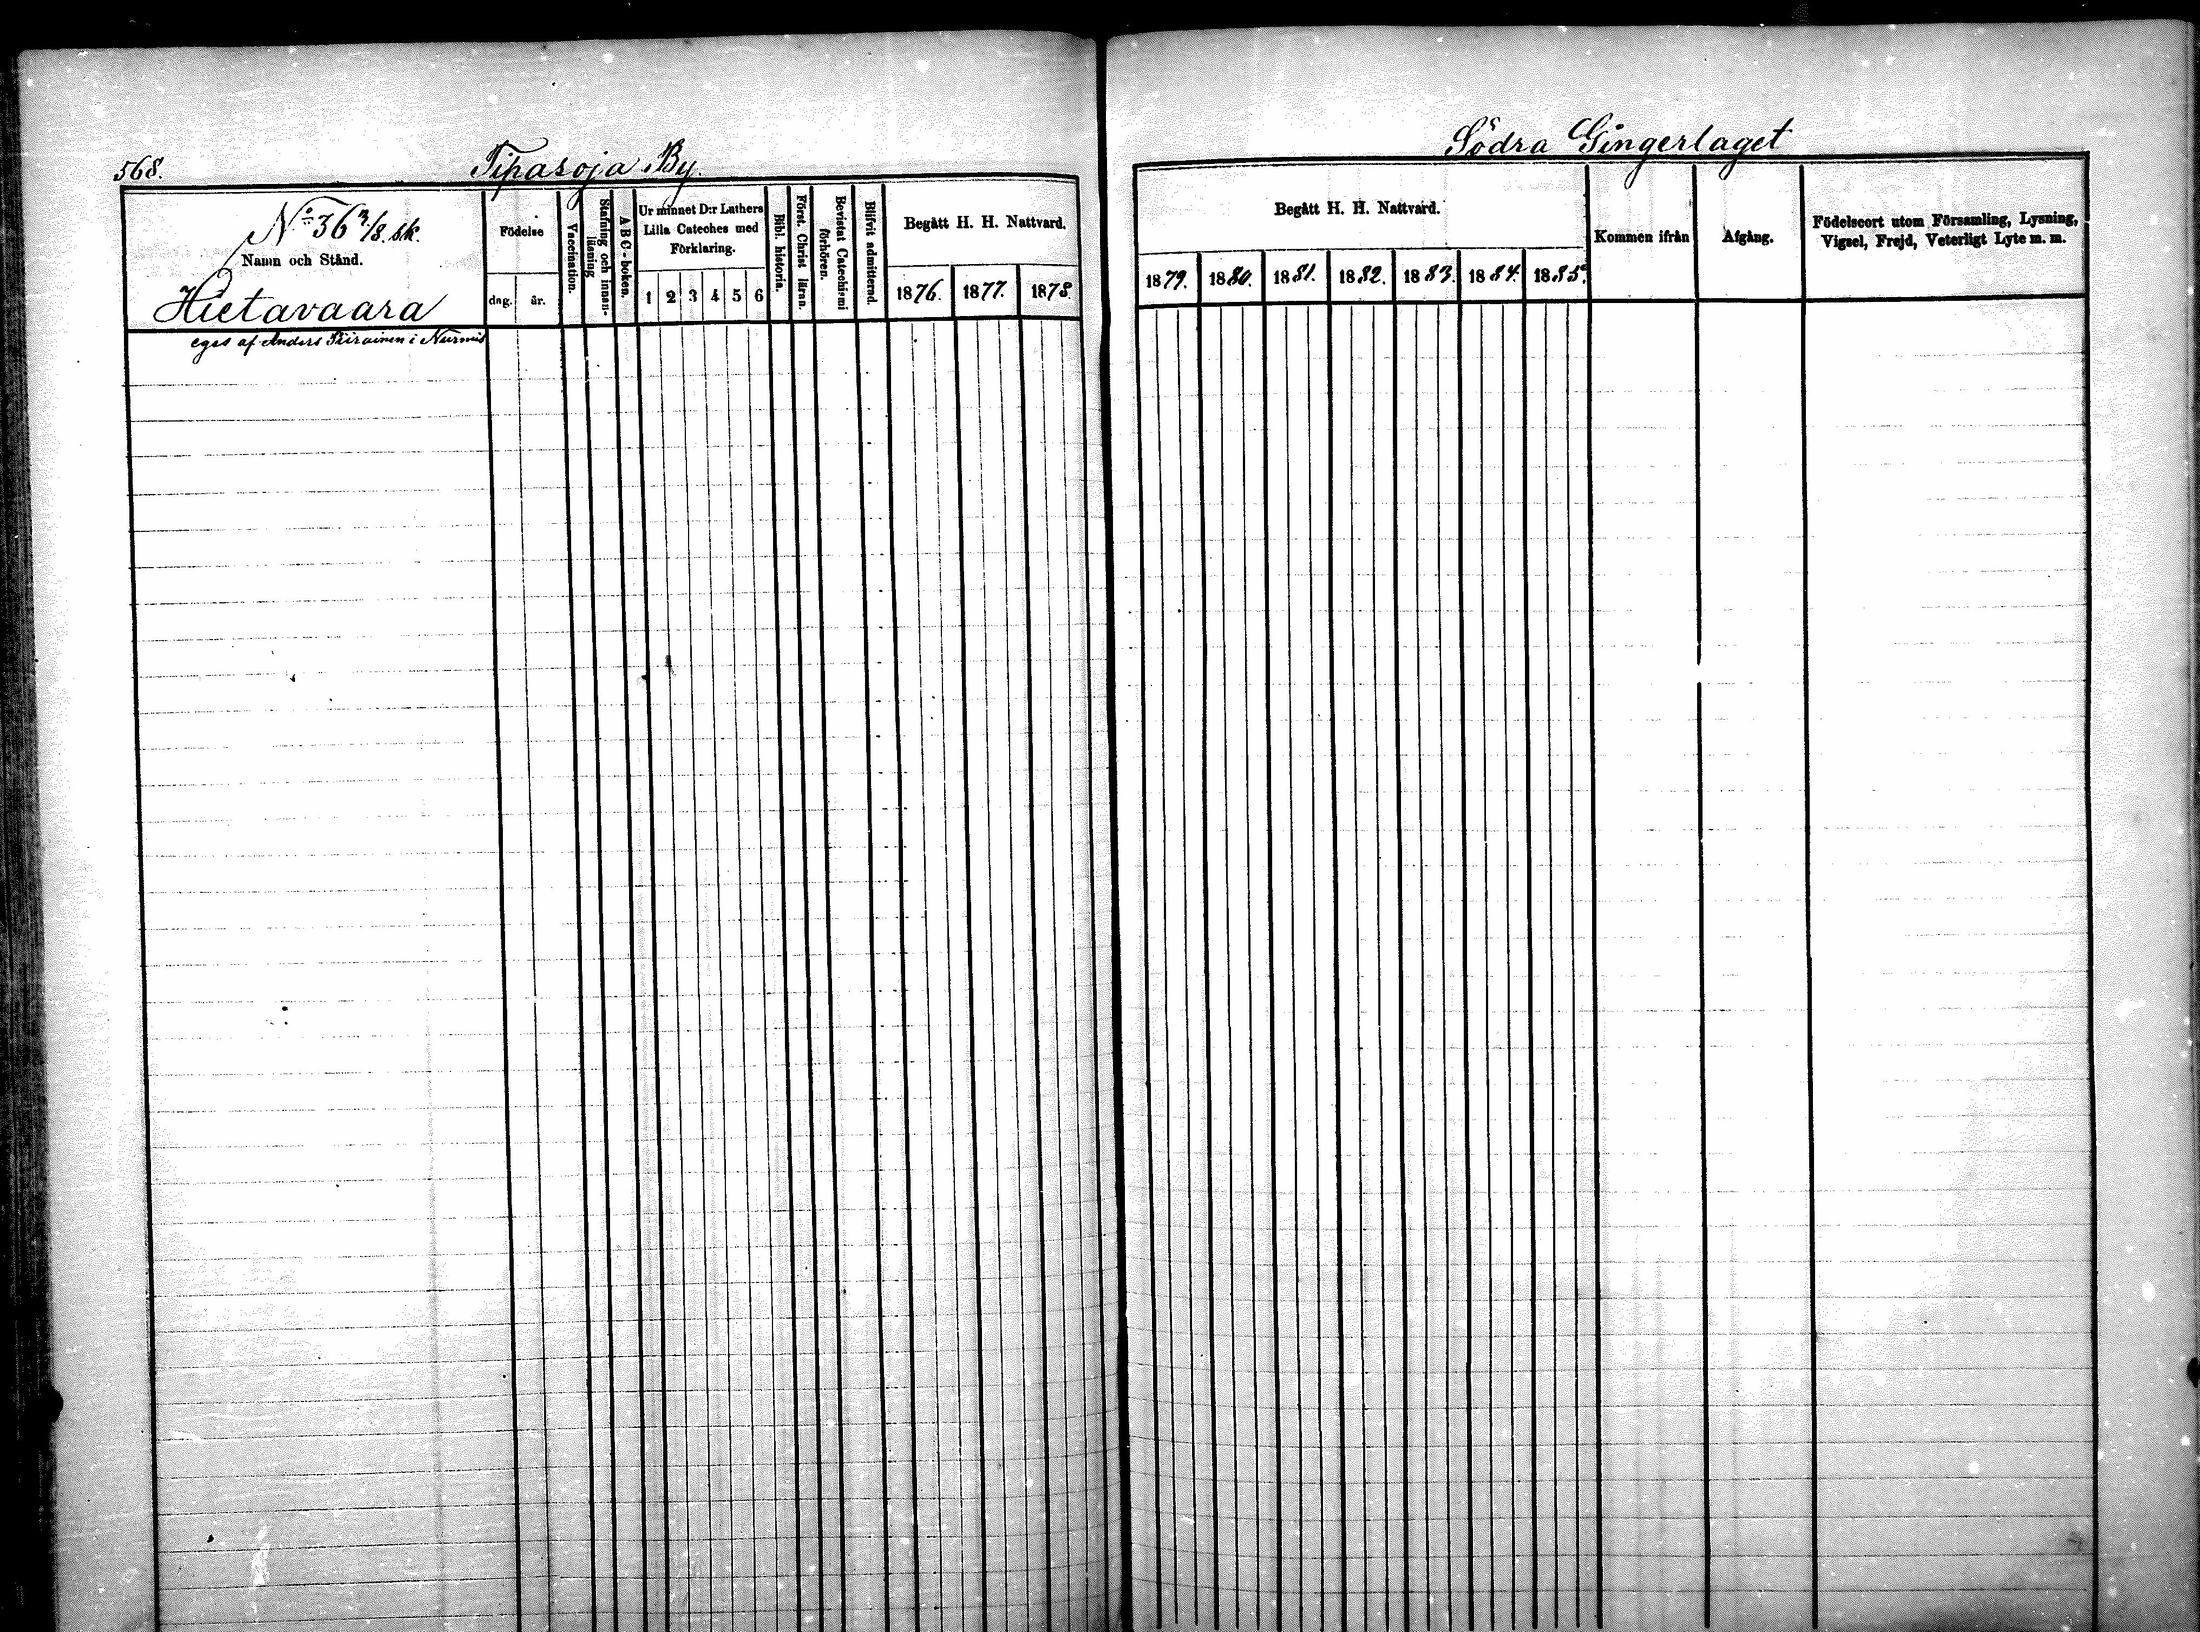 568.
Tipasoja By.
Södra Gingerlaget
No 36 3/8. sk.
Namn och Stånd.
Hietavaara
Födelse
dag. år.
Vaccination.
Stafning och innan-
läsning
ABC-boken.
Ur minnet D:r Luthers
Lilla Cateches med
Förklaring.
1 2 3 4 5 6
Bibl. historia.
Först. Christ läran.
Bevistat Catechismi
förhören.
Blifvit admitterad.
Begått H. H. Nattvard.
1876. 1877. 1878.
Begått H. H. Nattvard.
1879. 1880. 1881. 1882. 1883. 1884. 1885.
Kommen ifrån
Afgång.
Födelseort utom Församling, Lysning,
Vigsel, Frejd, Veterligt Lyte m. m.
eges af Anders Piirainen i Nurmis